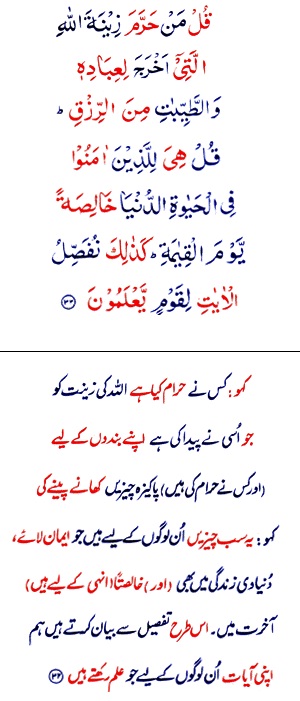 قُلْ مَنْ حَرَّمَ زِيْنَةَ اللّٰهِ
الَّتِيْٓ اَخْرَجَ لِعِبَادِهٖ
وَالطَّيِّبٰتِ مِنَ الرِّزْقِ ؕ
قُلْ هِيَ لِلَّذِيْنَ اٰمَنُوْا
فِي الْحَيٰوةِ الدُّنْيَا خَالِصَةً
يَّوْمَ الْقِيٰمَةِ ؕ كَذٰلِكَ نُفَصِّلُ
الْاٰيٰتِ لِقَوْمٍ يَّعْلَمُوْنَ ﴿۳۲﴾
کہو: کس نے حرام کیا ہے اللہ کی زینت کو
جو اُسی نے پیدا کی ہے اپنے بندوں کے لیے
(اور کس نے حرام کی ہیں) پاکیزہ چیزیں کھانے پینے کی
کہو: یہ سب چیزیں اُن لوگوں کے لیے ہیں جو ایمان لائے،
دُنیاوی زندگی میں بھی (اور) خالصتاً (انہی کے لیے ہیں)
آخرت میں۔ اس طرح تفصیل سے بیان کرتے ہیں ہم
اپنی آیات اُن لوگوں کے لیے جو علم رکھتے ہیں ﴿۳۲﴾